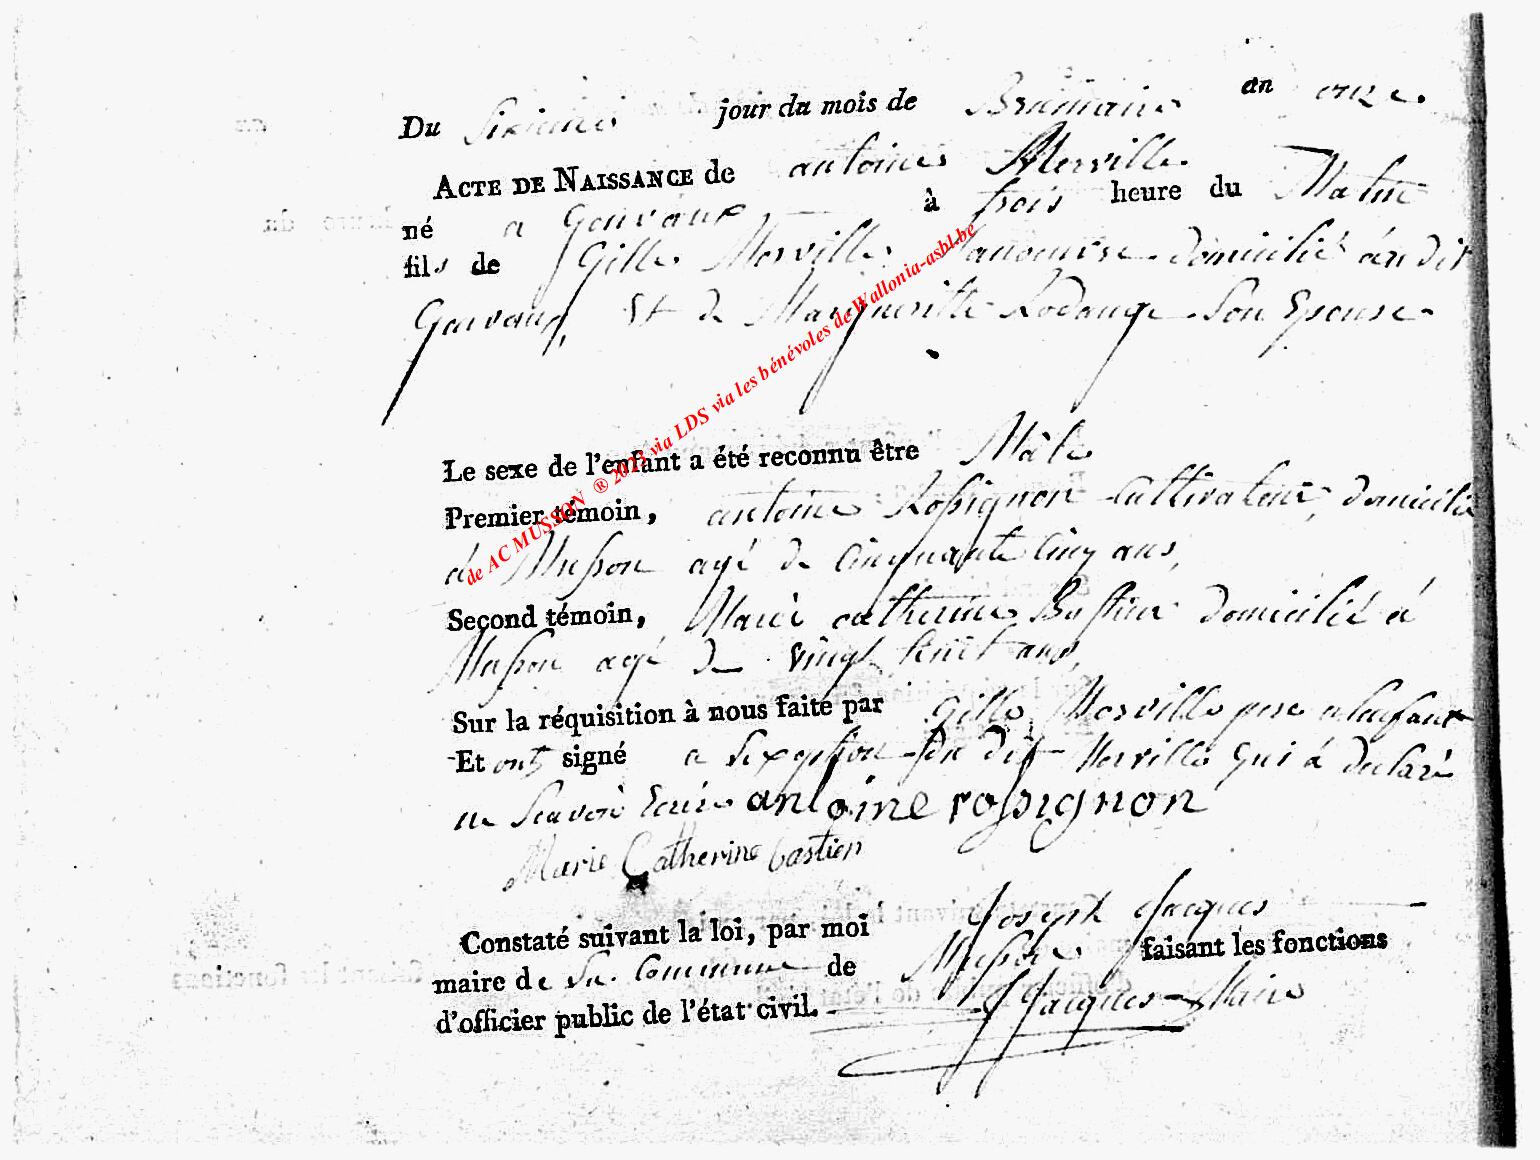 Du Sixieme jour du mois de Brumaire an onze.
ACTE DE NAISSANCE de antoine Merville
né a Gorvaux à trois heure du Matin
fils de Gille Merville Manouvre domicilié au dit
Gorvaux, Et de Margueritte Rodange Son Epouse
Le sexe de l'enfant a été reconnu être Mâle
Premier témoin, antoine Rossignon Cultivateur, domicilié
à Musson agé de Cinquante Cinq ans,
Second témoin, Marie catherine Bastien domicilié à
Musson agé de vingt huit ans,
Sur la réquisition à nous faite par Gille Merville pere a lenfant
Et ont signé a Lexeption du dit Merville qui à declaré
ne Scavoir Ecrire antoine rossignon
Marie Catherine bastien
Constaté suivant la loi, par moi Joseph Jacques
maire de la Commune de Musson faisant les fonctions
d'officier public de l'état civil. J Jacques Maire
de AC MUSSON ® via LDS via les bénévoles de Wallonia-asbl.be